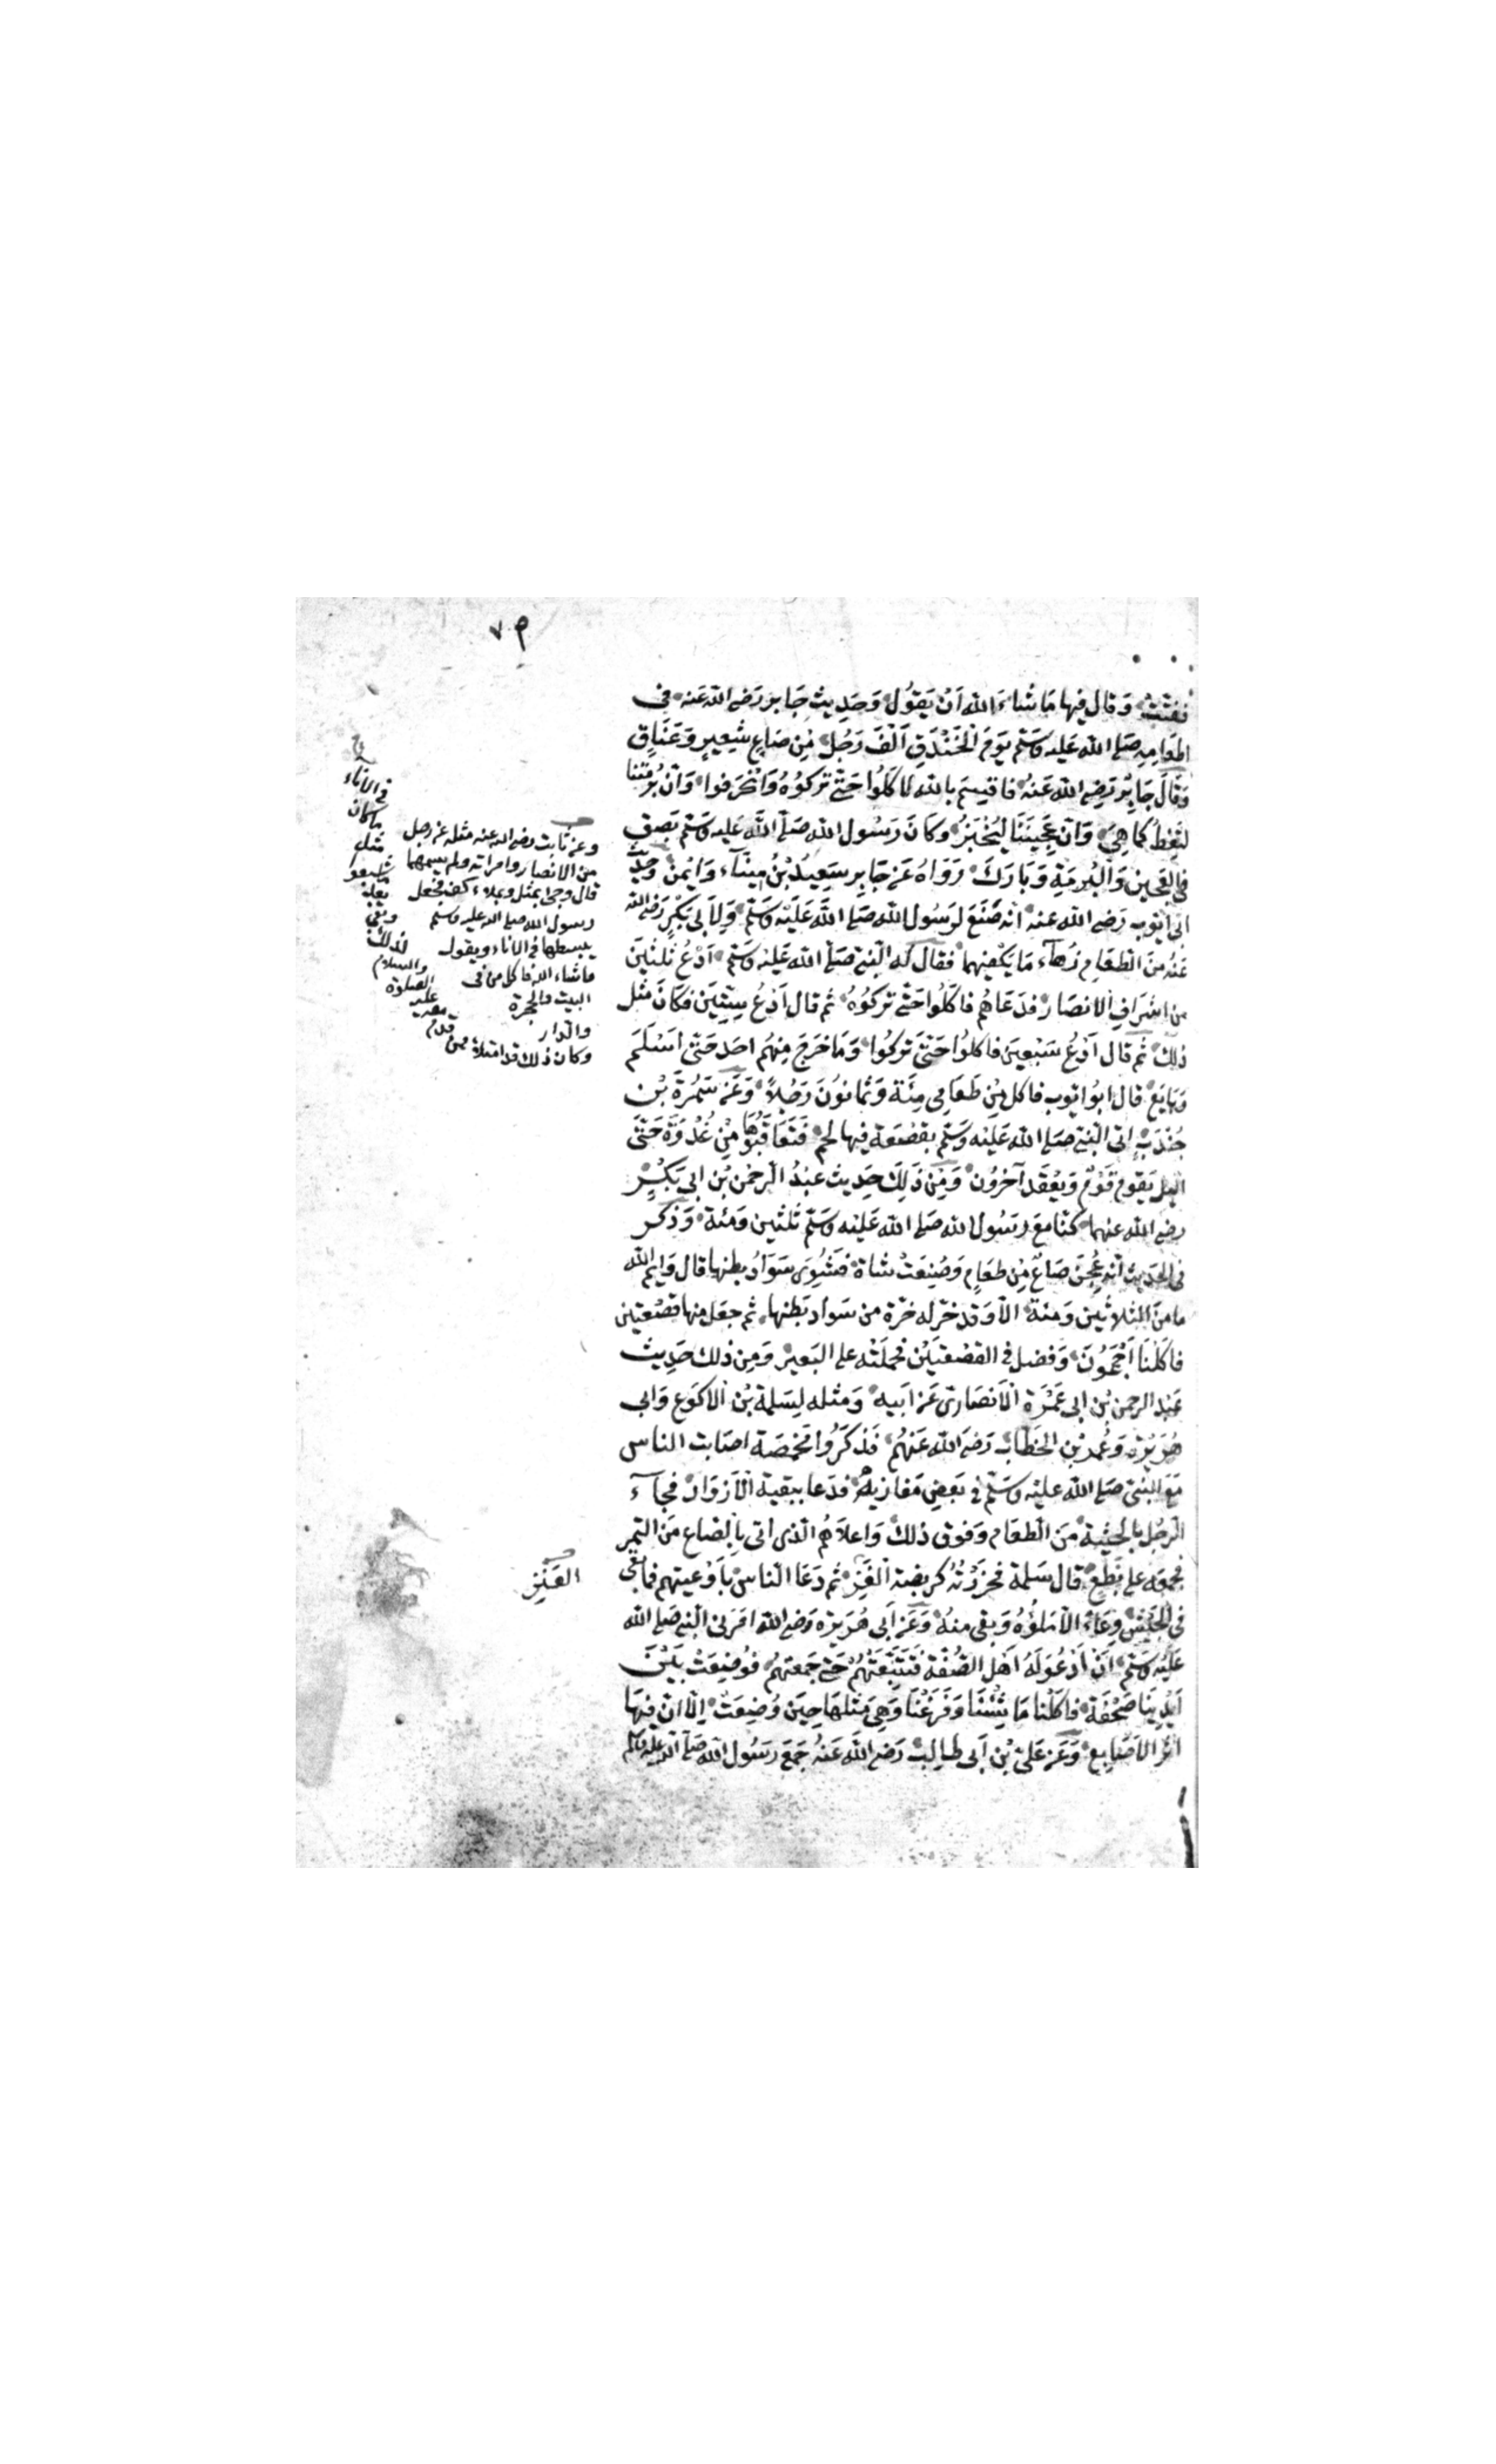 ٧٩
ففتت وَقال فيها مَا شَاءَ الله اَنْ يَقُول وَحَدِيث جَابر رَضي الله عَنه في
اطعامِهِ صَلى الله عَليه وَسَلم يَومَ الْخَنْدَقِ اَلْفَ رَجُل مِن صَاعِ شَعِيرٍ وَعَنَاقٍ
وَقَالَ جَابِرٌ رَضِي الله عَنهُ فاقسِمُ بالله لاَكَلُوا حَتّى تركوُهُ وَانْحَرَفوا وَانّ بُرمَتنا
لتَغِطّ كما هِيَ وَانّ عَجِينَنَا ليُخْبَزُ وَكَانَ رَسُول الله صَلّى الله عَليه وَسَلم بَصق
في العَجِين وَالبُرمَةِ وَبَارَكَ رَوَاهُ عَن جَابِر سَعِيدُ بْنُ مِينَآء وَايْمن وَحديث
ابي اَيّوب رَضي الله عنه انّه صَنَعَ لرَسُول الله صَلى الله عَلَيْه وَسَلم وَلاَبي بَكْرٍ رَضي الله
عَنْهُ مِنَ الطّعَام زُهَآء مَا يَكْفيهما فقال لَه النّبي صَلّى الله عَليْه وَسَلم اَدْعُ ثلثينَ
من اشرَافِ الانصَار فدَعَاهُم فاكَلُوا حَتّى تركوُهُ ثم قال اَدْعُ سِتّينَ فكَانَ مثل
ذلكَ ثم قال اَدْعُ سَبْعينَ فاكلوُا حَتّى تركوُا وَمَا خَرَجَ مِنهُم احَد حَتّى اَسْلَمَ
وَبَايَعَ قال ابوُ ايّوب فاكل مِن طَعَامِي مِئَة وَثمانوُنَ رَجُلاً وَعَن سَمُرَةَ بْن
جُنْدَبٍ اتى النّبي صَلى الله عَلَيْه وَسَلم بقَصْعَة فيها لحم فَتَعَاقَبُوهَا مِنْ غُدْوَةَ حَتّى
الليل يَقوم قَوْمٌ وَيَقْعَد آخرُون وَمِن ذَلِكَ حَدِيث عَبْدُ الرّحْمن بْن ابي بَكْرٍ
رضي الله عنهما كنّا مَعَ رسُول الله صَلى الله عَليْه وَسَلم ثلثين وَمئة وَذَكر
في الحَديث انّه عُجِنَ صَاعٌ مِن طعَامٍ وَصُنِعَتْ شاة فشُوِيَ سَوَادُ بطنها قال وَايم الله
مَا منَ الثلاثين وَمئة الاّ وَقد حَزّ له حَزّة من سَوادِ بَطنها ثم جعَل منها قصْعتين
فاكَلنَا اَجْمَعُونَ وَفضل في القصْعتَيْن فحملتُه على البَعير وَمِن ذلك حَدِيث
عَبْد الرحمن بْن ابي عَمْرَةَ الاَنصَاري عَن ابيه وَمثله لِسَلمة بْن الاكوَع وَابي
هُرَيْرَة وَعُمر بْن الخَطّاب رَضيَ الله عَنْهُم فَذكَرُوا مخْمَصَة اصَابت الناس
مَعَ النّبي صَلى الله عليْه وَسَلم في بَعض مَغازيه فدَعا ببقية الاَزوَاد فجآء
الرّجُل بالحثية مِنَ الطّعَام وَفوق ذلك وَاعلاهُم الّذي اتى بالصّاع مِنَ التمر
فجمعَه على نطَع قال سَلمة فحزَرْتُهُ كربضة العَنز ثم دَعَا الناس باَوْعيتهم فما بقي
في الجَيْش وِعَاء الاّ مَلؤُهُ وَبقى منهُ وَعَن اَبي هُرَيرَة رَضي الله امَرَني النّبي صَلى الله
عَليْه وَسَلم اَنْ اَدْعُوَ لَهُ اهْل الصّفّة فَتَتَبّعْتُهُمْ حَتى جَمعتهُم فوُضِعَتْ بَيْنَ
اَيْدِينَا صَحْفَة فاكَلْنا مَا شِئْنَا وَفَرَغْنَا وَهِيَ مثلهَا حِينَ وُضِعَتْ اِلاّ انّ فيهَا
اثر الاَصَابع وَعَن عَليّ بْن اَبي طالب رَضي الله عَنْهُ جَمَعَ رَسُول الله صَلى الله عليه وسلم
وعن ثابت رضي الله عنه مثله عن رجل
من الانصار وامراته ولم يسمهما
قال وجئ بمثل وملاء كف فجعل
رسول الله صلى الله عليه وسلم
يبسطها في الاناء ويقول
ما شاء الله فاكل من في
البيت والحجرة
والدار
وكان ذلك قد امتلاء ممن
قدم
معه
عليه
الصلوة
والسلام
لذلك
وبقي
بعد
شبعوا
مثل
ما كان
في الاناء
صح
العَنز